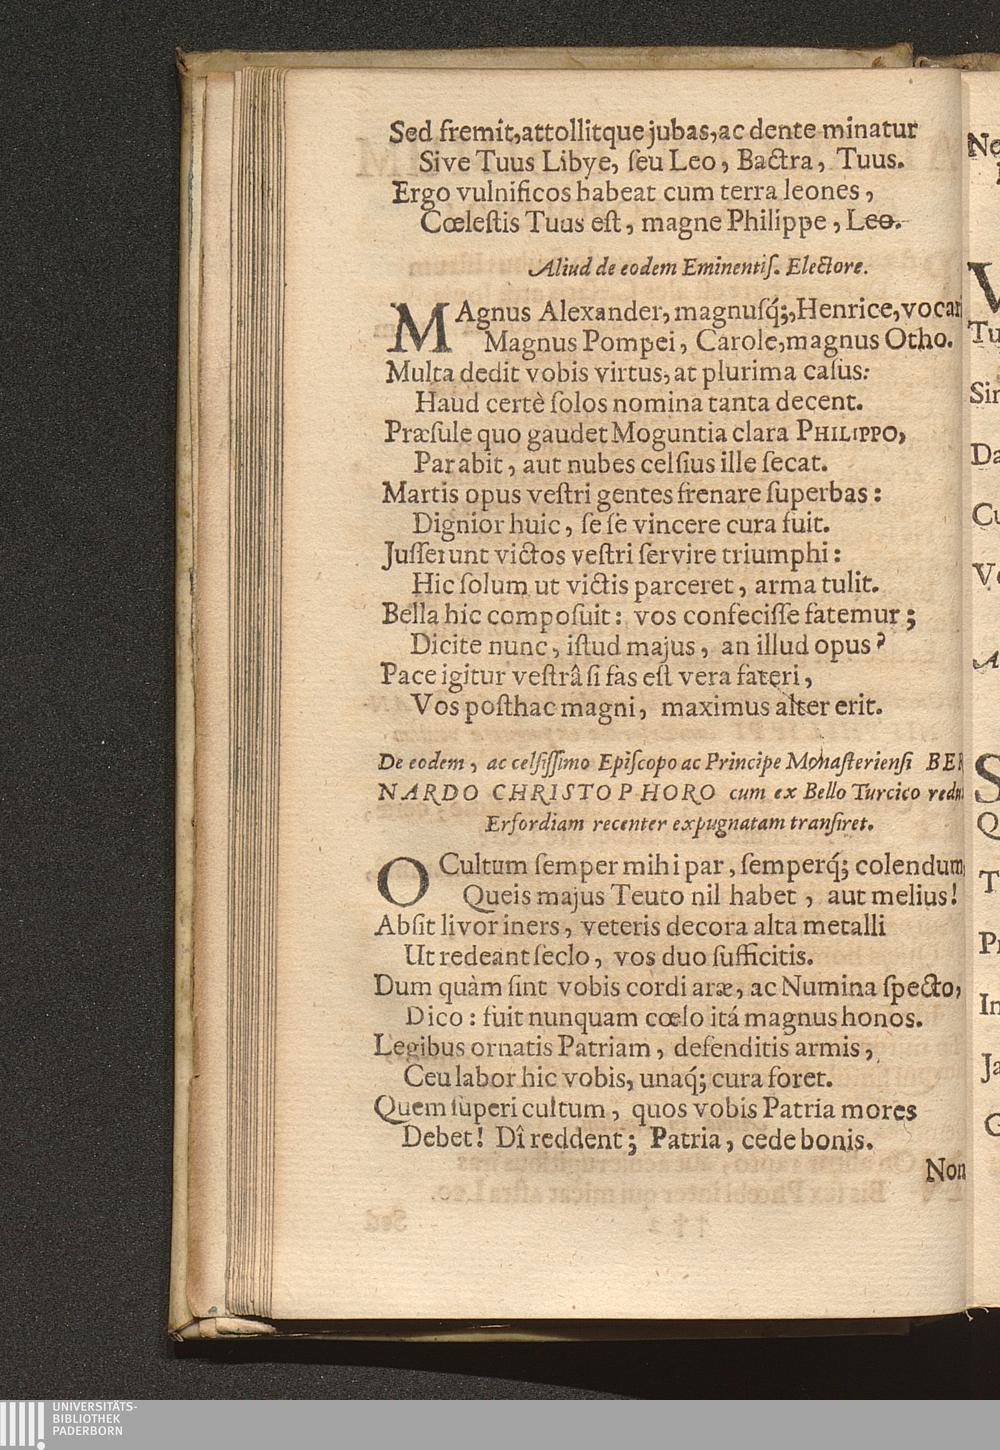 Sed fremit, attollitque jubas, ac dente minatur
Sive Tuus Libye, ſeu Leo, Bactra, Tuus.
Ergo vulnificos habeat cum terra leones,
Cœleſtis Tuus eſt, magne Philippe, Leo.
Aliud de eodem Eminentiſ. Electore.
MAgnus Alexander, magnuſq́;, Henrice, vocar
Magnus Pompei, Carole, magnus Otho.
Multa dedit vobis virtus, at plurima caſus:
Haud certè ſolos nomina tanta decent.
Præſule quo gaudet Moguntia clara PHILIPPO,
Par abit, aut nubes celſius ille ſecat.
Martis opus veſtri gentes frenare ſuperbas:
Dignior huic, ſe ſe vincere cura fuit.
Juſſerunt victos veſtri ſervire triumphi:
Hic ſolum ut victis parceret, arma tulit.
Bella hic compoſuit: vos confeciſſe fatemur;
Dicite nunc, iſtud majus, an illud opus?
Pace igitur veſtrâ ſi fas eſt vera fateri,
Vos poſthac magni, maximus alter erit.
De eodem, ac celſiſſimo Epiſcopo ac Principe Monaſterienſi BER
NARDO CHRISTOPHORO cum ex Bello Turcico redu
Erfordiam recenter expugnatam tranſiret.
OCultum ſemper mihi par, ſemperq́; colendum
Queis majus Teuto nil habet, aut melius!
Abſit livor iners, veteris decora alta metalli
Ut redeant ſeclo, vos duo ſufficitis.
Dum quàm ſint vobis cordi aræ, ac Numina ſpecto,
Dico: fuit nunquam cœlo itá magnus honos.
Legibus ornatis Patriam, defenditis armis,
Ceu labor hic vobis, unaq́; cura foret.
Quem ſuperi cultum, quos vobis Patria mores
Debet! Dî reddent; Patria, cede bonis.
Non
Ne
V
Tu
Sin
Da
Cu
Ve
A
S
Q
T
Pr
In
Ja
G
UNIVERSITÄTS-
BIBLIOTHEK
PADERBORN